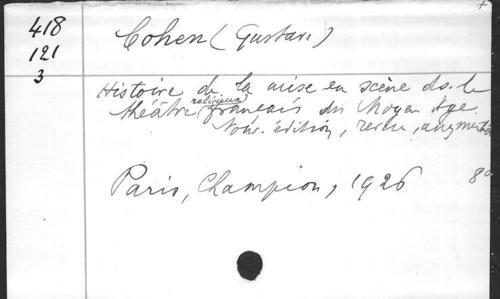 418
121
3
Cohen (Gustave)
Histoire de la mise en scène ds. le
théâtre religieux français du Moyen Age.
Nouv. édition, revue, augmentée
Paris, Champion, 1926 8°